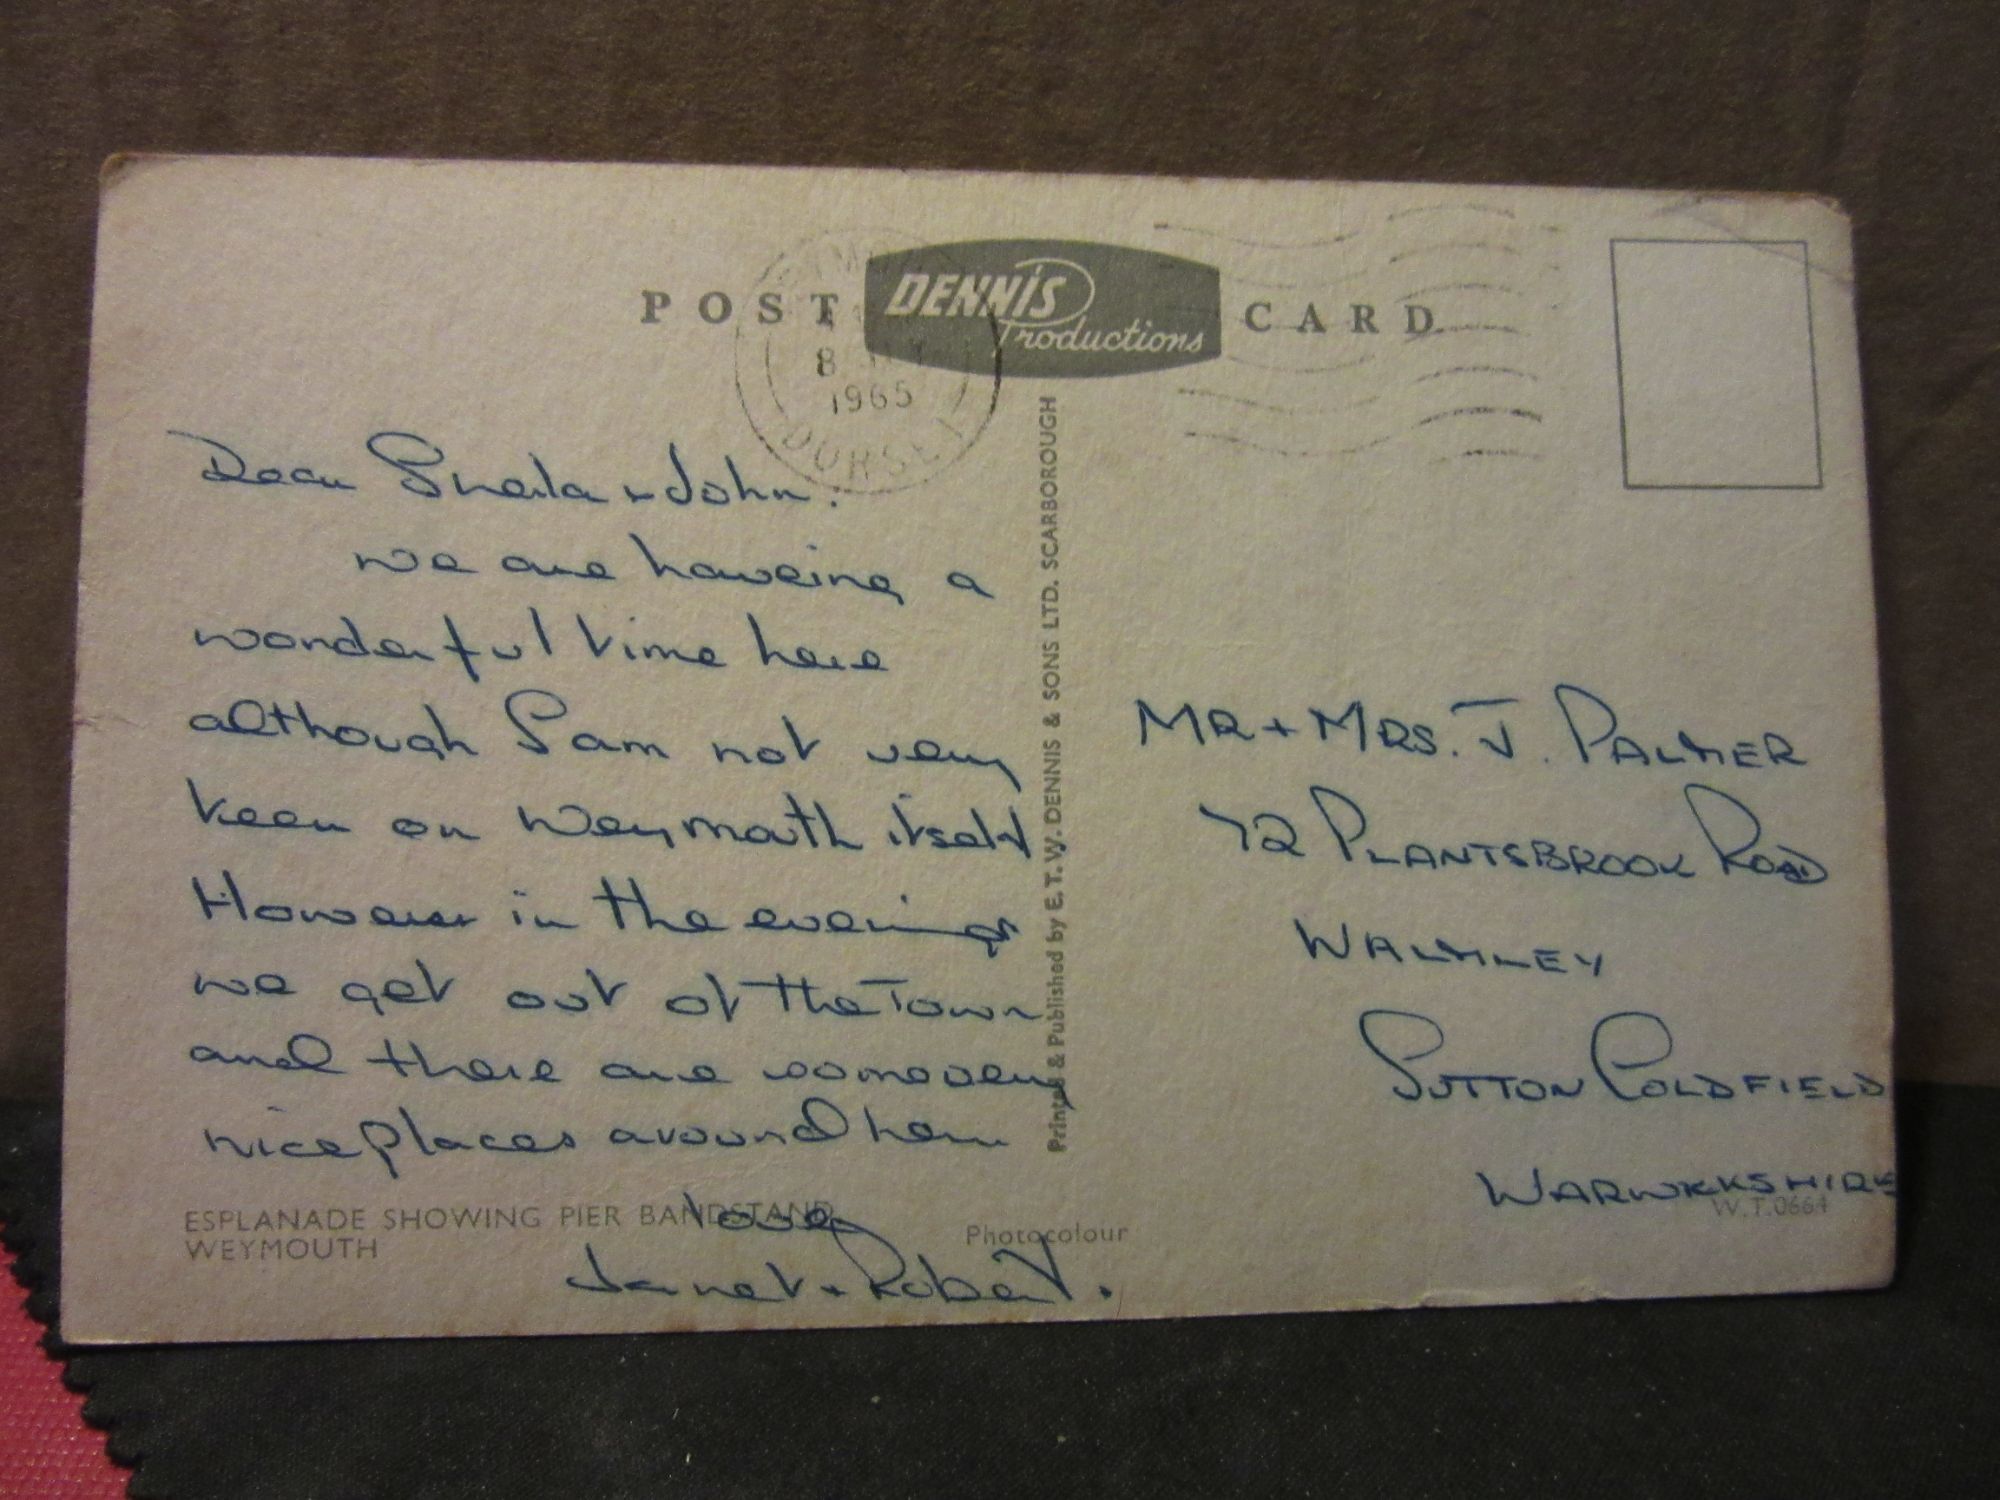 POST CARD
DENNIS
Productions
8
1965
DORSET
Dear Sheila + John.
we are haveing a
wonderful time here
although I am not very
keen on Weymouth itself.
However in the evenings
we get out of the Town
and there are some very
nice places around here
love
Janet + Robert.
MR + MRS. J. PALMER
72 PLANTSBROOK ROAD
WALMLEY
SUTTON COLDFIELD
WARWICKSHIRE
Printed & Published by E. T. W. DENNIS & SONS LTD. SCARBOROUGH
ESPLANADE SHOWING PIER BANDSTAND
WEYMOUTH
Photocolour
W.T.0664